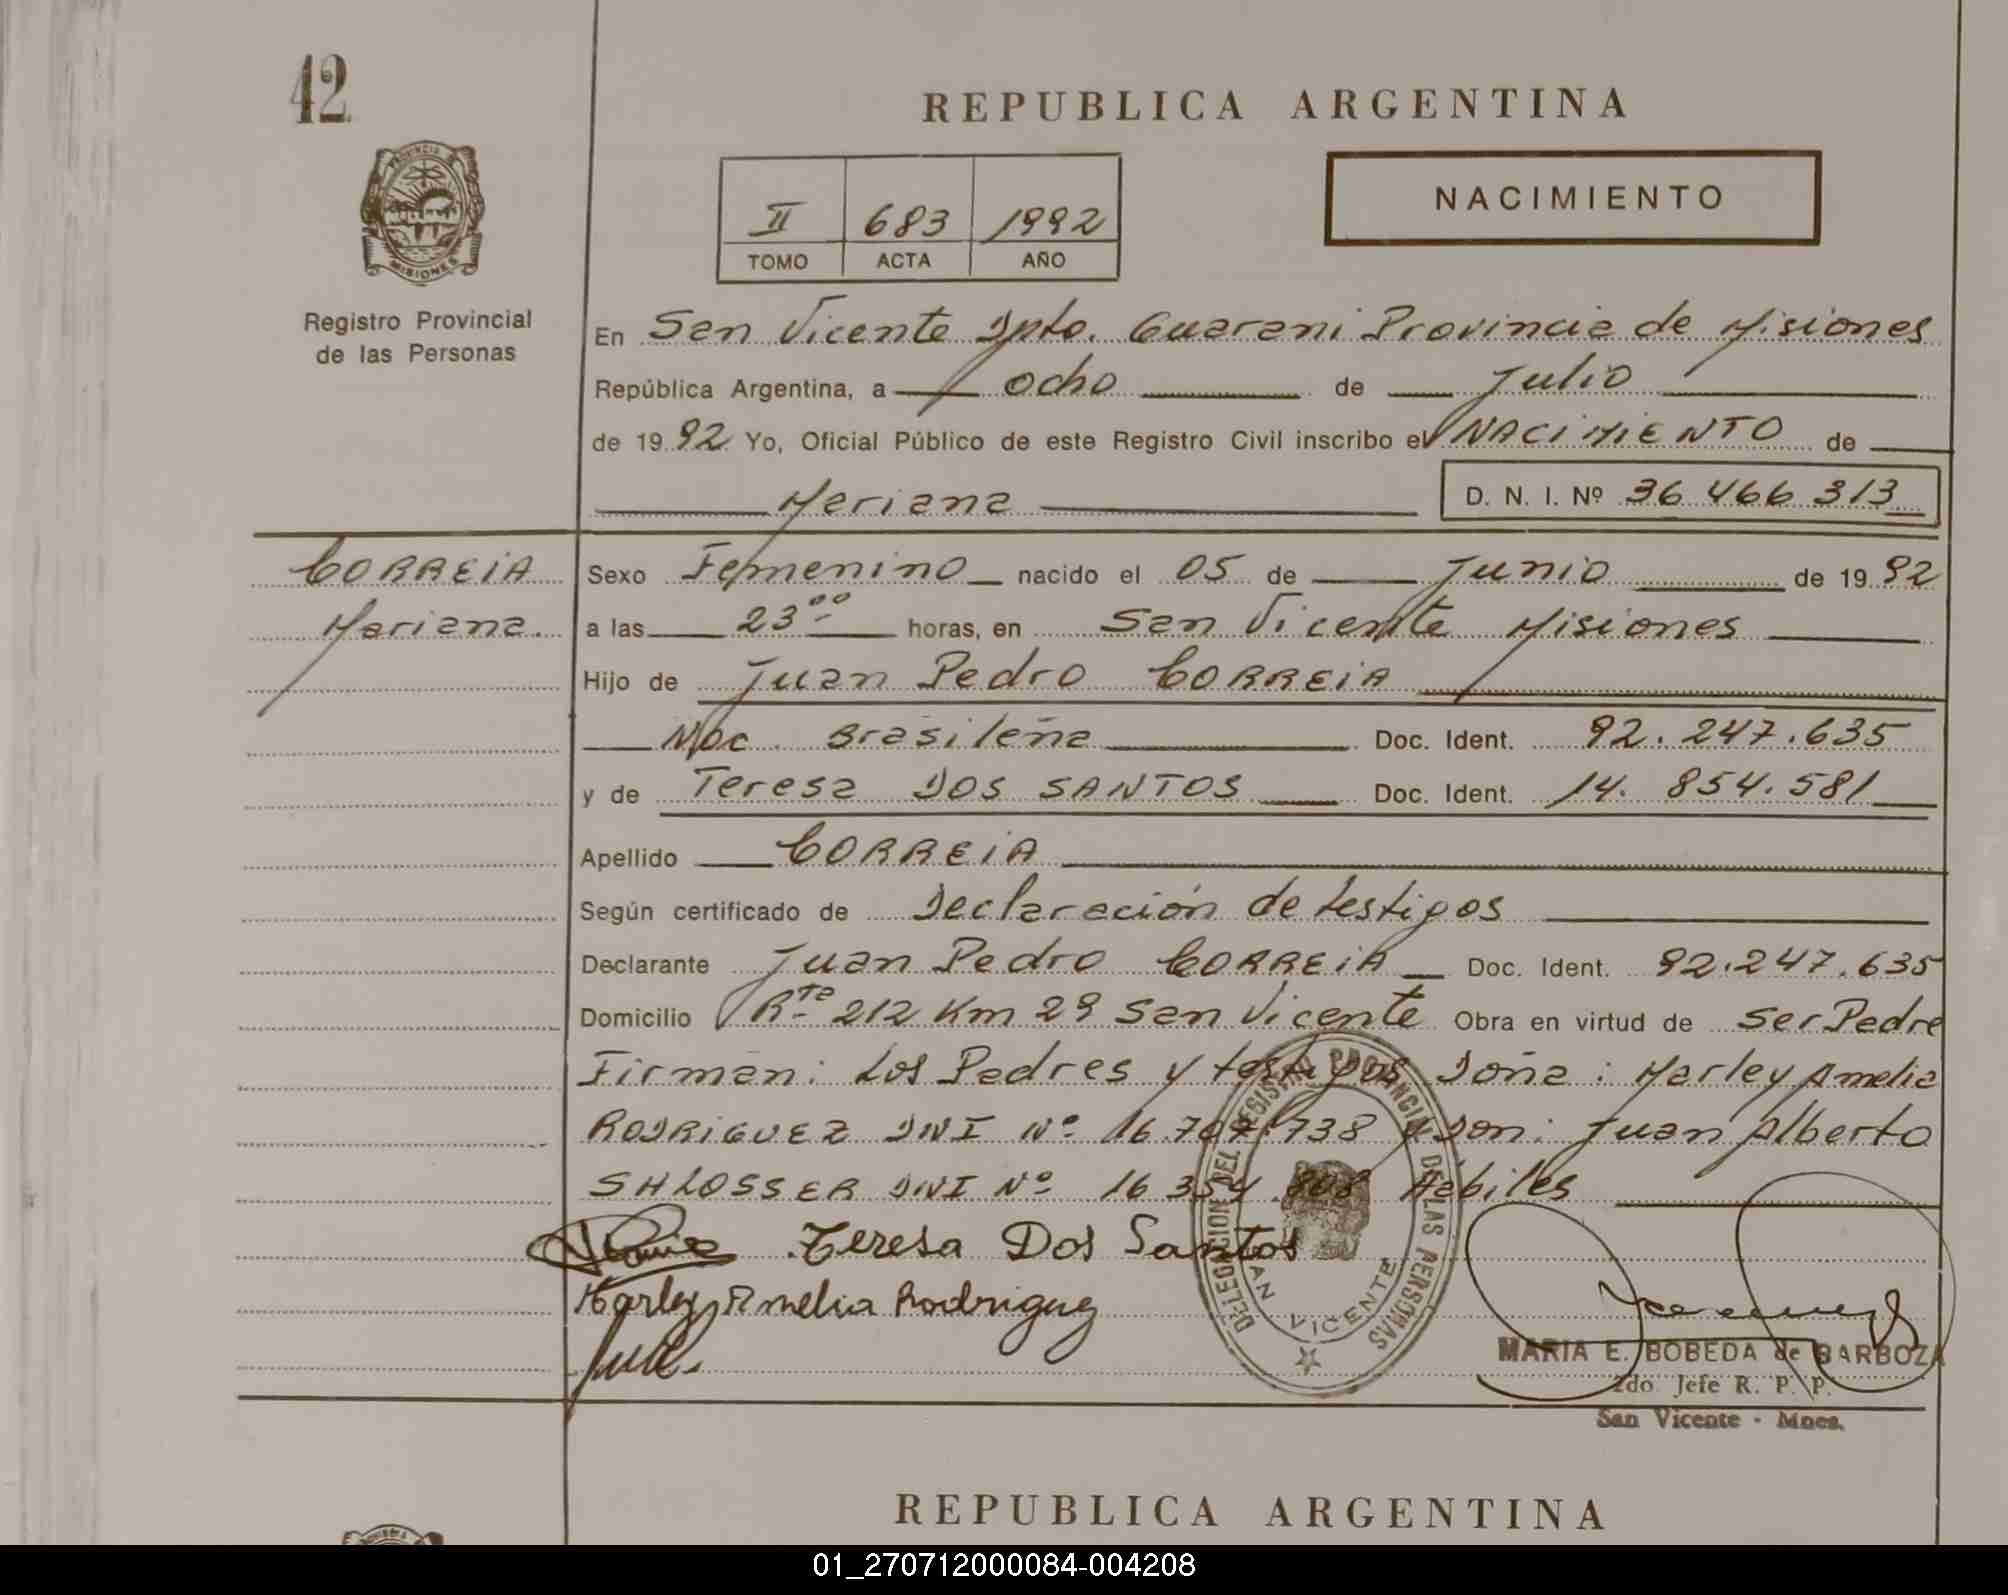 42
REPUBLICA ARGENTINA
NACIMIENTO
II 683 1992
TOMO ACTA AÑO
PROVINCIA DE
MISIONES
Registro Provincial
de las Personas
En San Vicente Dpto. Guarani Provincia de Misiones
República Argentina, a ocho de Julio
de 19 92 Yo, Oficial Público de este Registro Civil inscribo el NACIMIENTO de
Mariana D. N. I. Nº 36 466 313
CORREIA
Mariana.
Sexo Femenino nacido el 05 de Junio de 19 92
a las 23ºº horas, en San Vicente Misiones
Hijo de Juan Pedro CORREIA
Nac. Brasileña Doc. Ident. 92.247.635
y de Teresa DOS SANTOS Doc. Ident. 14. 854.581
Apellido CORREIA
Según certificado de Declaración de testigos
Declarante Juan Pedro CORREIA Doc. Ident. 92.247.635
Domicilio Rta 212 Km 29 San Vicente Obra en virtud de ser Padre
Firman: Los Padres y testigos Doña: Marley Amelia
RODRIGUEZ DNI Nº 16.707.738 y Don: Juan Alberto
SHLOSSER DNI Nº 16 354.808 Hábiles
Teresa Dos Santos
Marley Amelia Rodriguez
DELEGACION DEL REGISTRO PROVINCIAL DE LAS PERSONAS
SAN VICENTE
MARIA E. BOBEDA de BARBOZA
2do. Jefe R. P. P.
San Vicente - Mnes.
REPUBLICA ARGENTINA
01_270712000084-004208